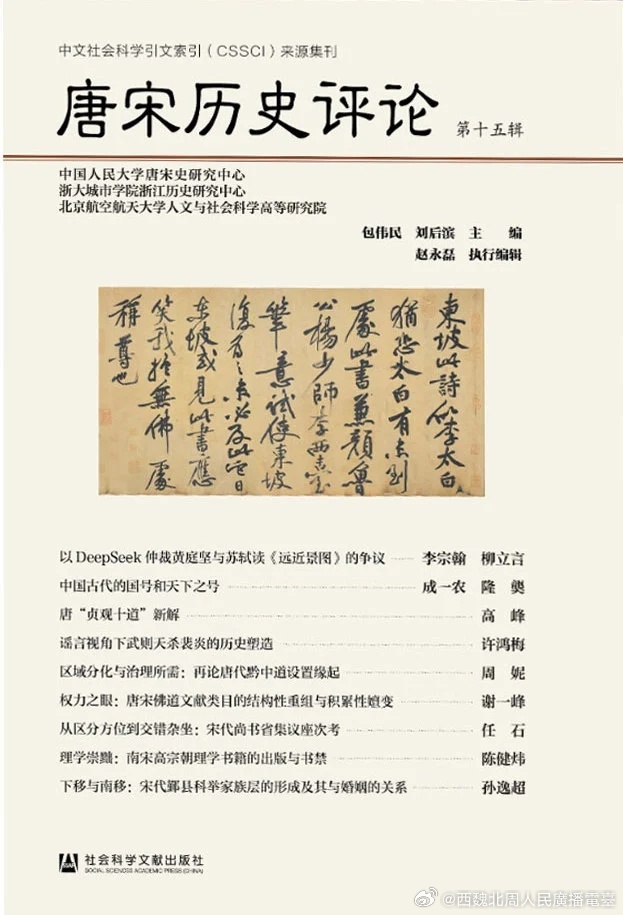 中文社会科学引文索引（CSSCI）来源集刊
唐宋历史评论 第十五辑
中国人民大学唐宋史研究中心
浙大城市学院浙江历史研究中心
北京航空航天大学人文与社会科学高等研究院
包伟民 刘后滨 主 编
赵永磊 执行编辑
東坡此詩似李太白
猶恐太白有未到
處此書兼顏魯
公楊少師李西臺
筆意試使東坡
復為之未必及此它日
東坡或見此書應
笑我於無佛處
稱尊也
以 DeepSeek 仲裁黄庭坚与苏轼读《远近景图》的争议 李宗翰 柳立言
中国古代的国号和天下之号 成一农 隆龑
唐“贞观十道”新解 高 峰
谣言视角下武则天杀裴炎的历史塑造 许鸿梅
区域分化与治理所需：再论唐代黔中道设置缘起 周 妮
权力之眼：唐宋佛道文献类目的结构性重组与积累性嬗变 谢一峰
从区分方位到交错杂坐：宋代尚书省集议座次考 任 石
理学崇黜：南宋高宗朝理学书籍的出版与书禁 陈健炜
下移与南移：宋代鄞县科举家族层的形成及其与婚姻的关系 孙逸超
社会科学文献出版社
SOCIAL SCIENCES ACADEMIC PRESS (CHINA)
@西魏北周人民廣播電臺